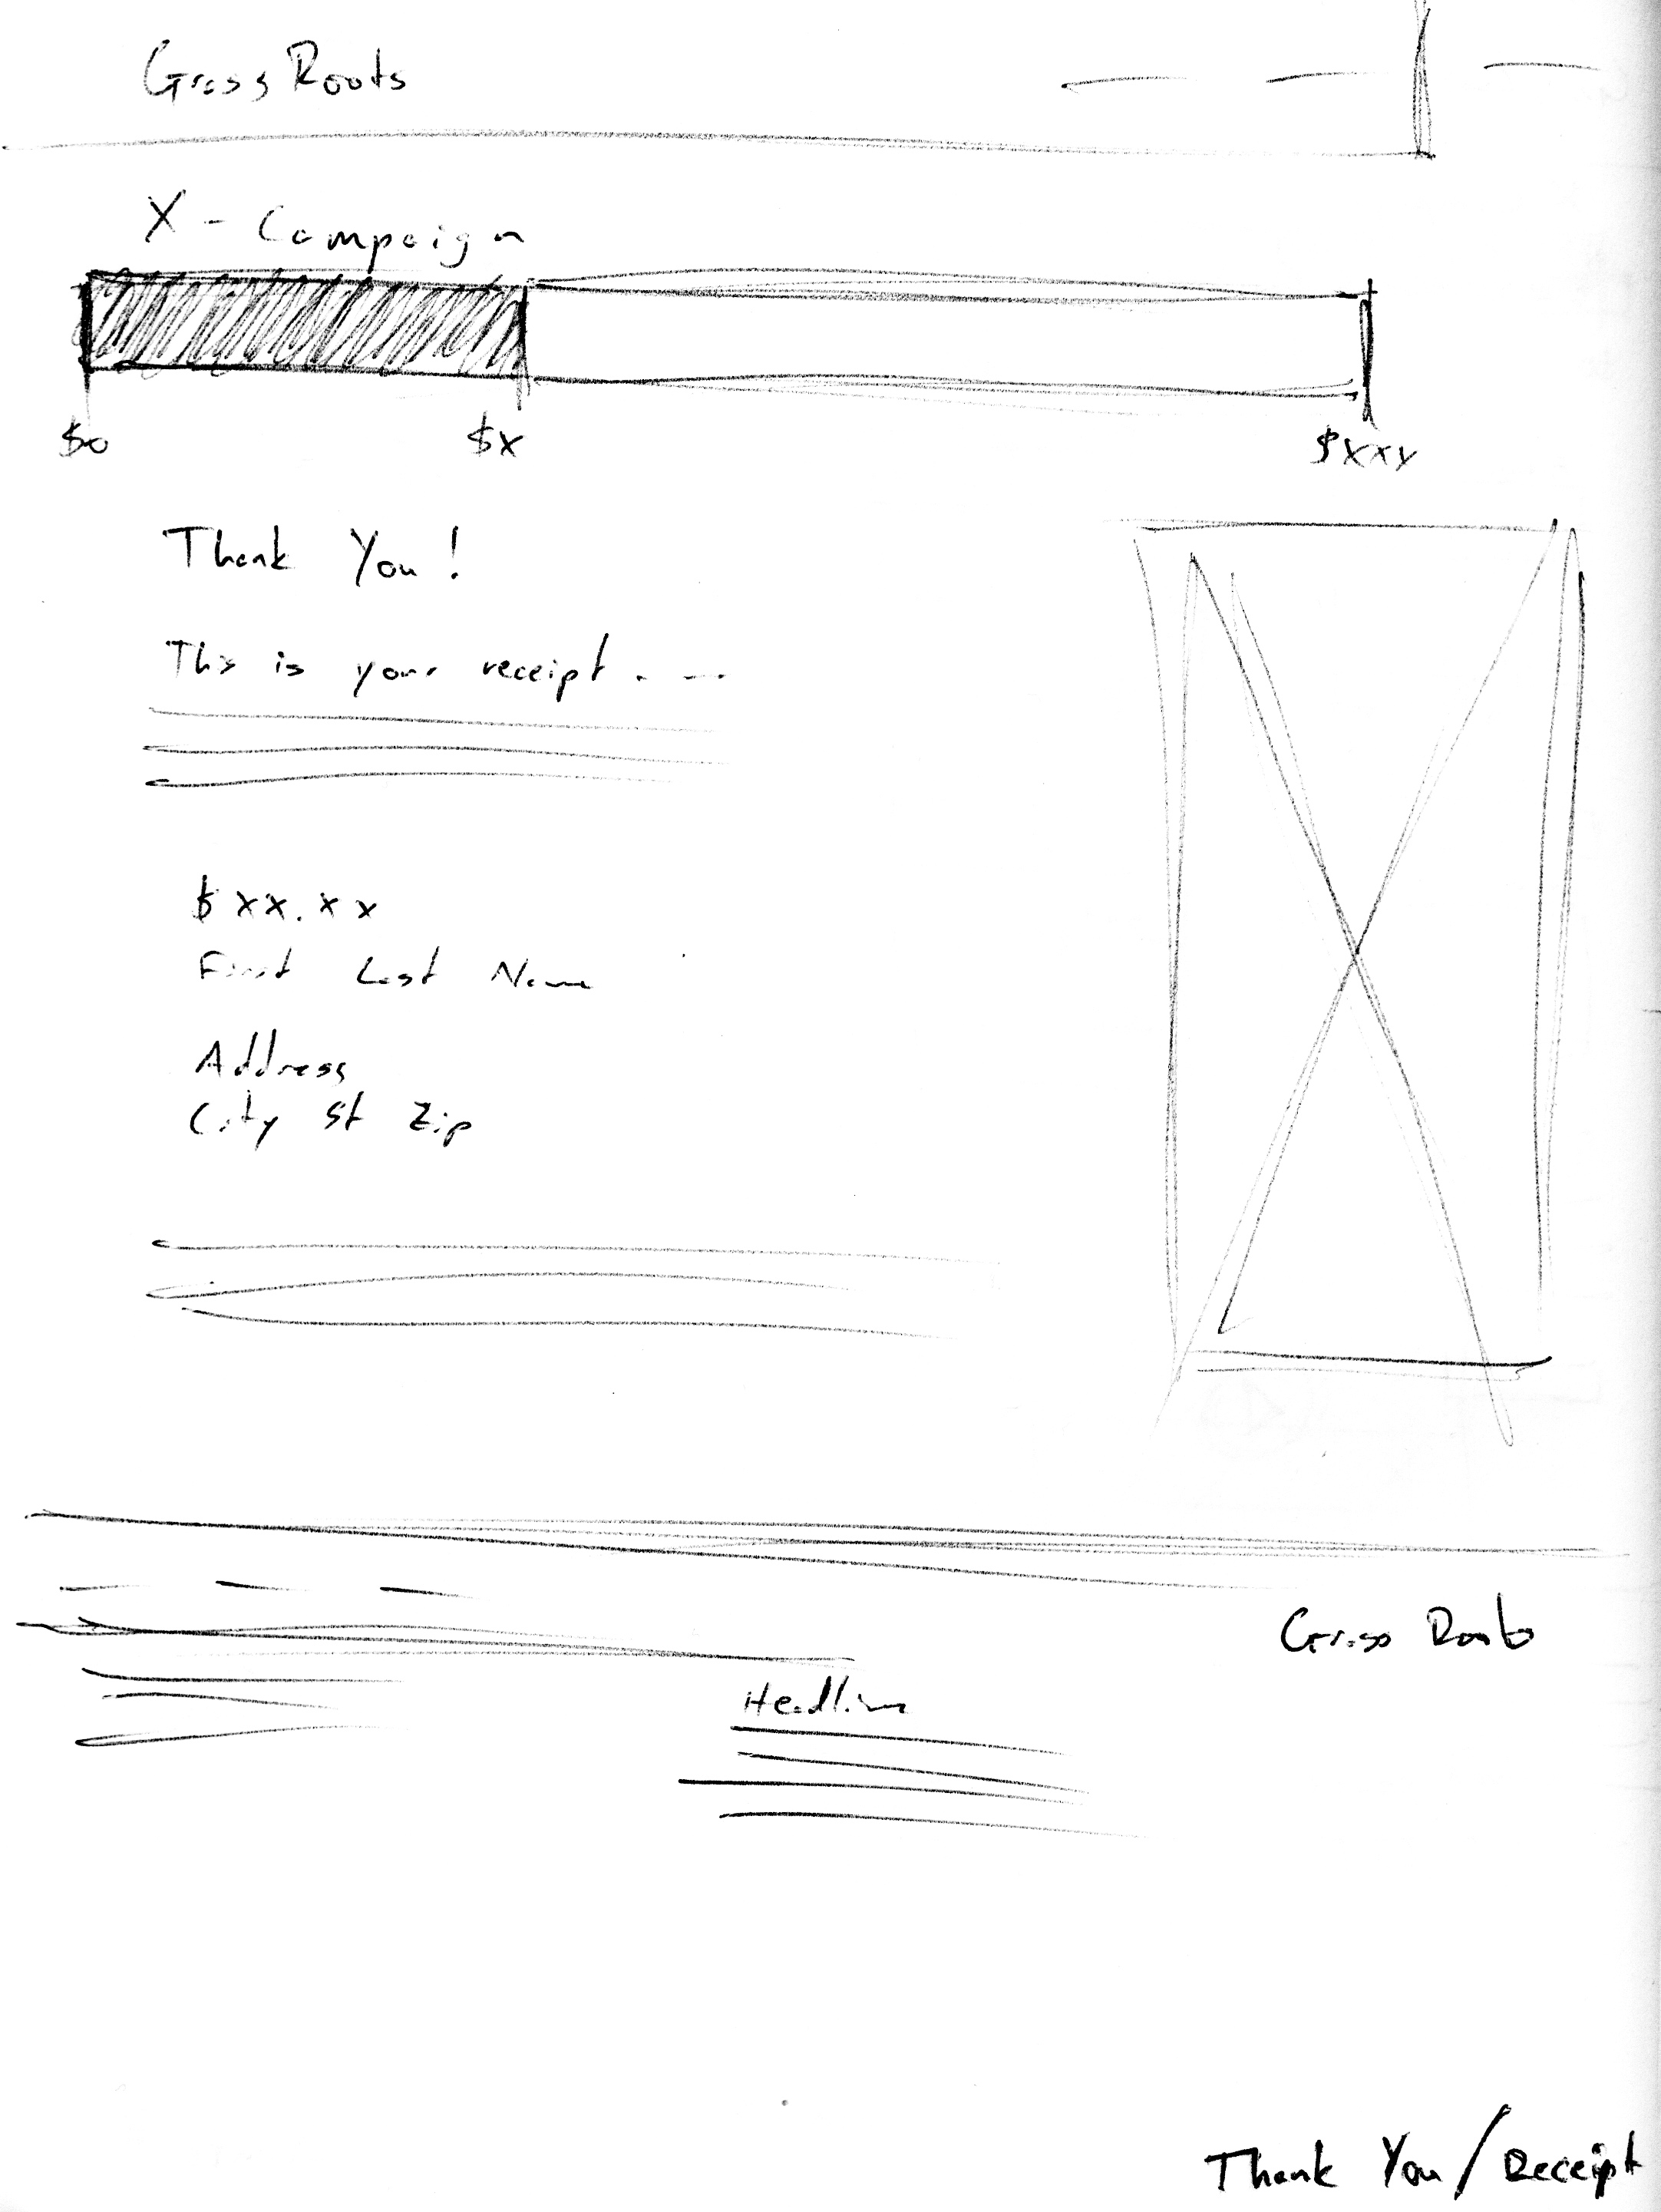 Grass Roots
X - Campaign
$0 $X $XXX
Thank You!
This is your receipt. ---
$ xx.xx
First Last Name
Address
City St Zip
Grass Roots
Headline
Thank You / Receipt